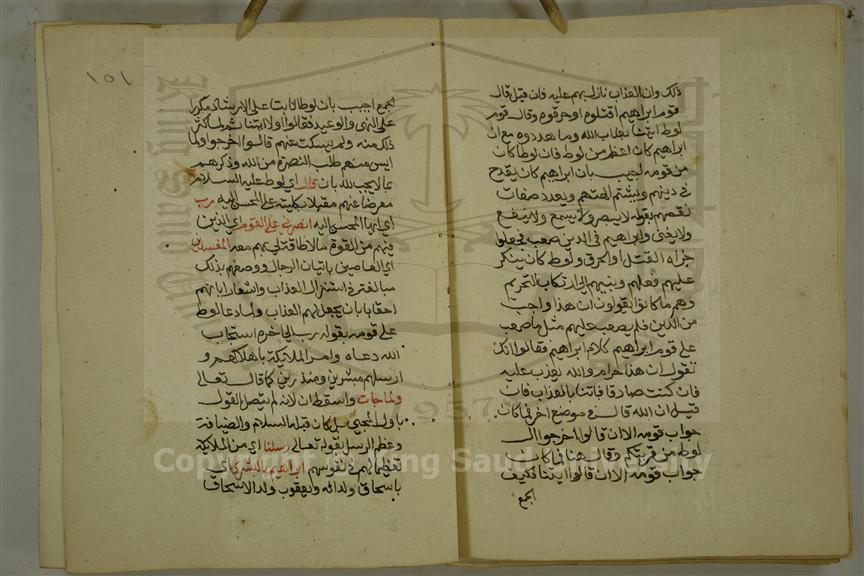 ذلك وان العذاب نازل بهم عليه فان قيل قال
قوم ابراهيم اقتلوه او حرقوه وقال قوم
لوط ائتنا بعذاب الله وما هددوه مع ان
ابراهيم كان اعظم من لوط فان لوطا كان
من قومه اجيب بان ابراهيم كان يقدح
في دينهم ويشتم الهتهم ويعدد صفات
نقصهم بقوله لا يبصر ولا يسمع ولا ينفع
ولا يغني وابراهيم في الدين صعب فجعلوا
جزاه القتل او الحرق ولوط كان ينكر
عليهم فعلهم وينبههم الى ارتكاب التحريم
وهم ما كانوا يقولون ان هذا واجب
من الدين فلم يصعب عليهم مثل ما صعب
على قوم ابراهيم كلام ابراهيم فقالوا انك
تقول ان هذا حرام والله يعذب عليه
فان كنت صادقا فاتنا بالعذاب فان
قيل ان الله قال في موضع اخر فما كان
جواب قومه الا ان قالوا اخرجوا ال
لوط من قريتكم وقال هنا فما كان
جواب قومه الا ان قالوا ايتنا فكيف
الجمع
١٥١
الجمع اجيب بان لوطا ثابتا على الارشاد مكررا
على النهي والوعيد فقالوا اولا ايتنا ثم لما كثر
ذلك منه ولم يسكت عنهم قالوا اخرجوا ولما
ايس منهم طلب النصرة من الله وذكرهم
بما لا يحب الله بان قال اي لوط عليه السلام
معرضا عنهم مقبلا بكليته على المحسن اليه رب
اي ايها المحسن اليه انصرني على القوم اي الذين
فيهم من القوة ما لا طاقة لي بهم معه المفسدين
اي العاصين باتيان الرجال ووصفهم بذلك
مبالغة في استنزال العذاب واشعارا بانهم
احقا بان يعجل لهم العذاب ولما دعا لوط
على قومه بقوله رب الى اخره استجاب
الله دعاه وامر الملائكة باهلاكهم و
ارسلهم مبشرين ومنذرين كما قال تعالى
ولما جات واسقط ان لانه لم يتصل القول
باول المجي بل كان قبله السلام والضيافة
وعظم الرسل بقوله تعالى رسلنا اي من الملائكة
تعظيما لهم في نفوسهم ابراهيم بالبشرى اي
باسحاق ولدا له ويعقوب ولدا لاسحاق
Copyright © King Saud University
1957